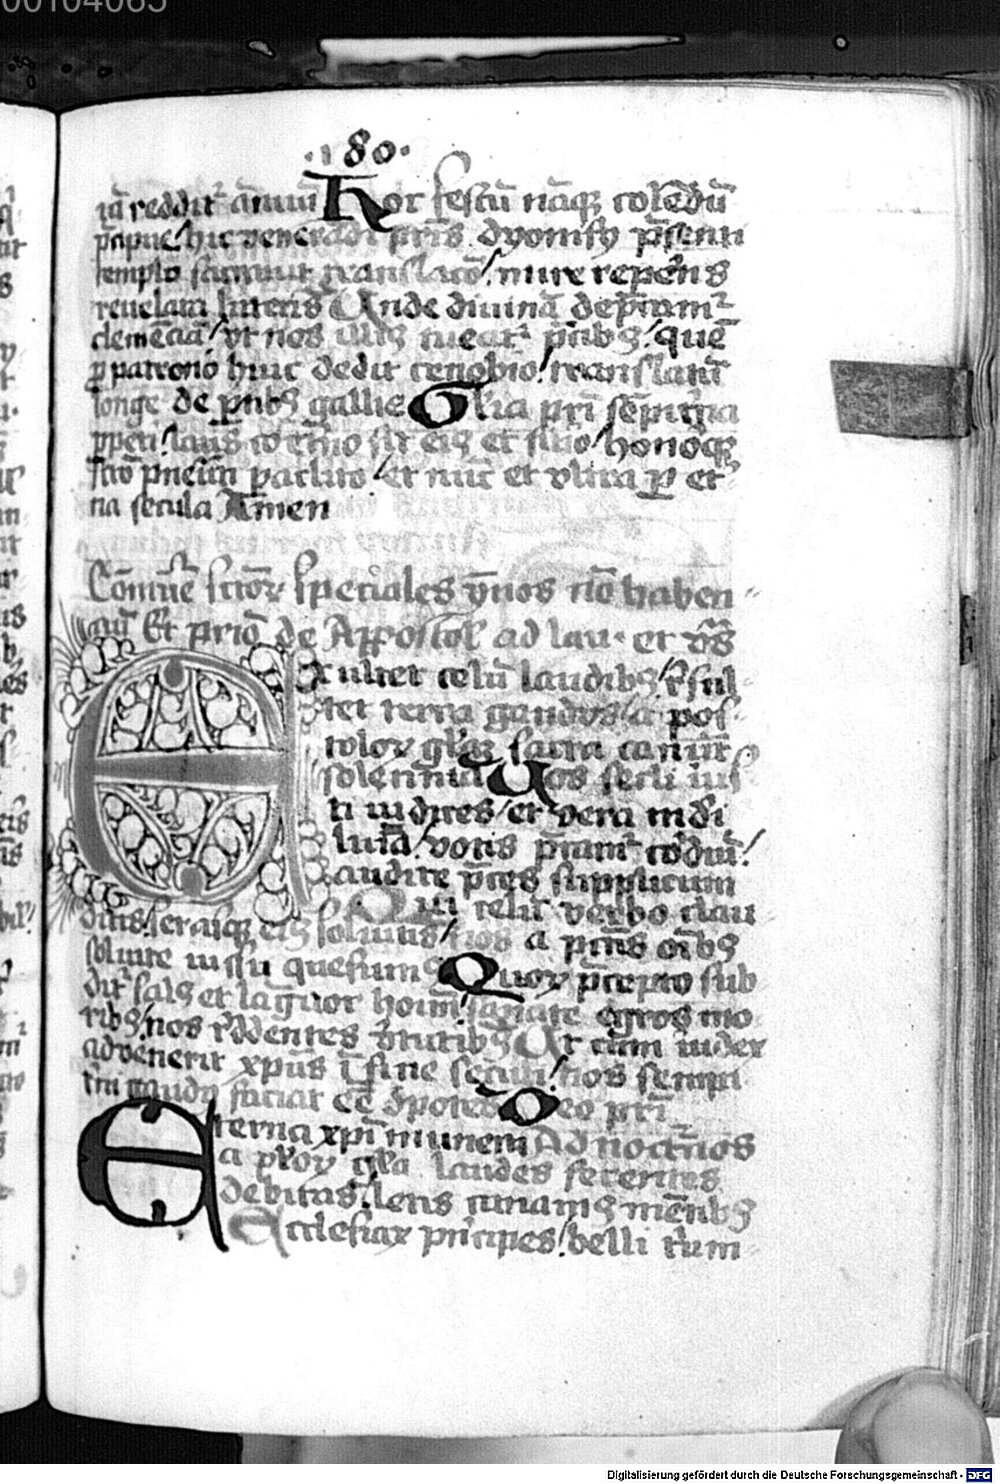 00104065
·180·
iā reddit᷑ āniuū Hoc festū nāq; colēdū
hic venerādi pr̄is dyonisÿ p̄senti
templo translacō / mire repertis
reuelata litteris Unde diuinā dep̄cam᷑
clemēciā / vt nos illi9 tueat᷑ p̄cib9 / quē
ꝑ patronō huic dedit cenobio / translatū
longe de p̄tib9 gallie Gl̄ia pr̄i sēpit̄na
ꝑpeti / laus sit ei9 et filio / honorq;
sc̄o pneūm paclito / et nūc et vltra ꝑ et̄
na secula Amen
Cōmūe sc̄tor᷑ speciales ȳnos nō haben
ciū Et prīo de Ap̄postol̄ ad lau· et vꝰ̄s
Exultet celū laudib9 / r̄sul
tet terra gaudiis / apos
tolor᷑ gl̄iaꝫ sacra canūt
solēnnia Uos secli ius
ti iudices / et vera mūdi
luīa / votis p̄cam᷑ cōrdiū /
audite p̄ces supplicum
Qui celū verbo clau
ditis / serasq; ei9 soluitis / nos a p̄ctīs oīb9
soluite iussu quesum9 Quor᷑ p̄cepto sub
dit᷑ sal9 et lāguor hoīm / sanate egros mo
rib9 / nos r̄ddentes v̄tutib9 Ut cum iudex
advenerit xp̄us ī fine seculi / nos sempi
t̄ni gaudii faciat eē ↄpotes Deo pr̄i
Eterna xp̄i munera Ad noct̄nos
a pl̄or᷑ gl̄ia laudes ferentes
debitas / letis canam9 mētib9
Ecclesiar᷑ pn̄cipes / belli t̄um
Digitalisierung gefördert durch die Deutsche Forschungsgemeinschaft - DFG